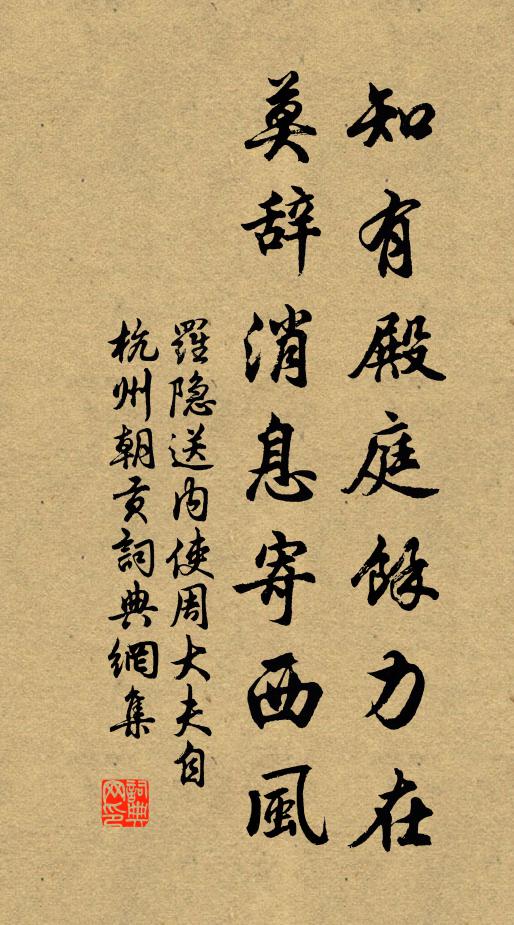 知有殿庭餘力在
莫辞消息寄西風
羅隐送内使周大夫自
杭州朝贡詞典網集
詞典网印